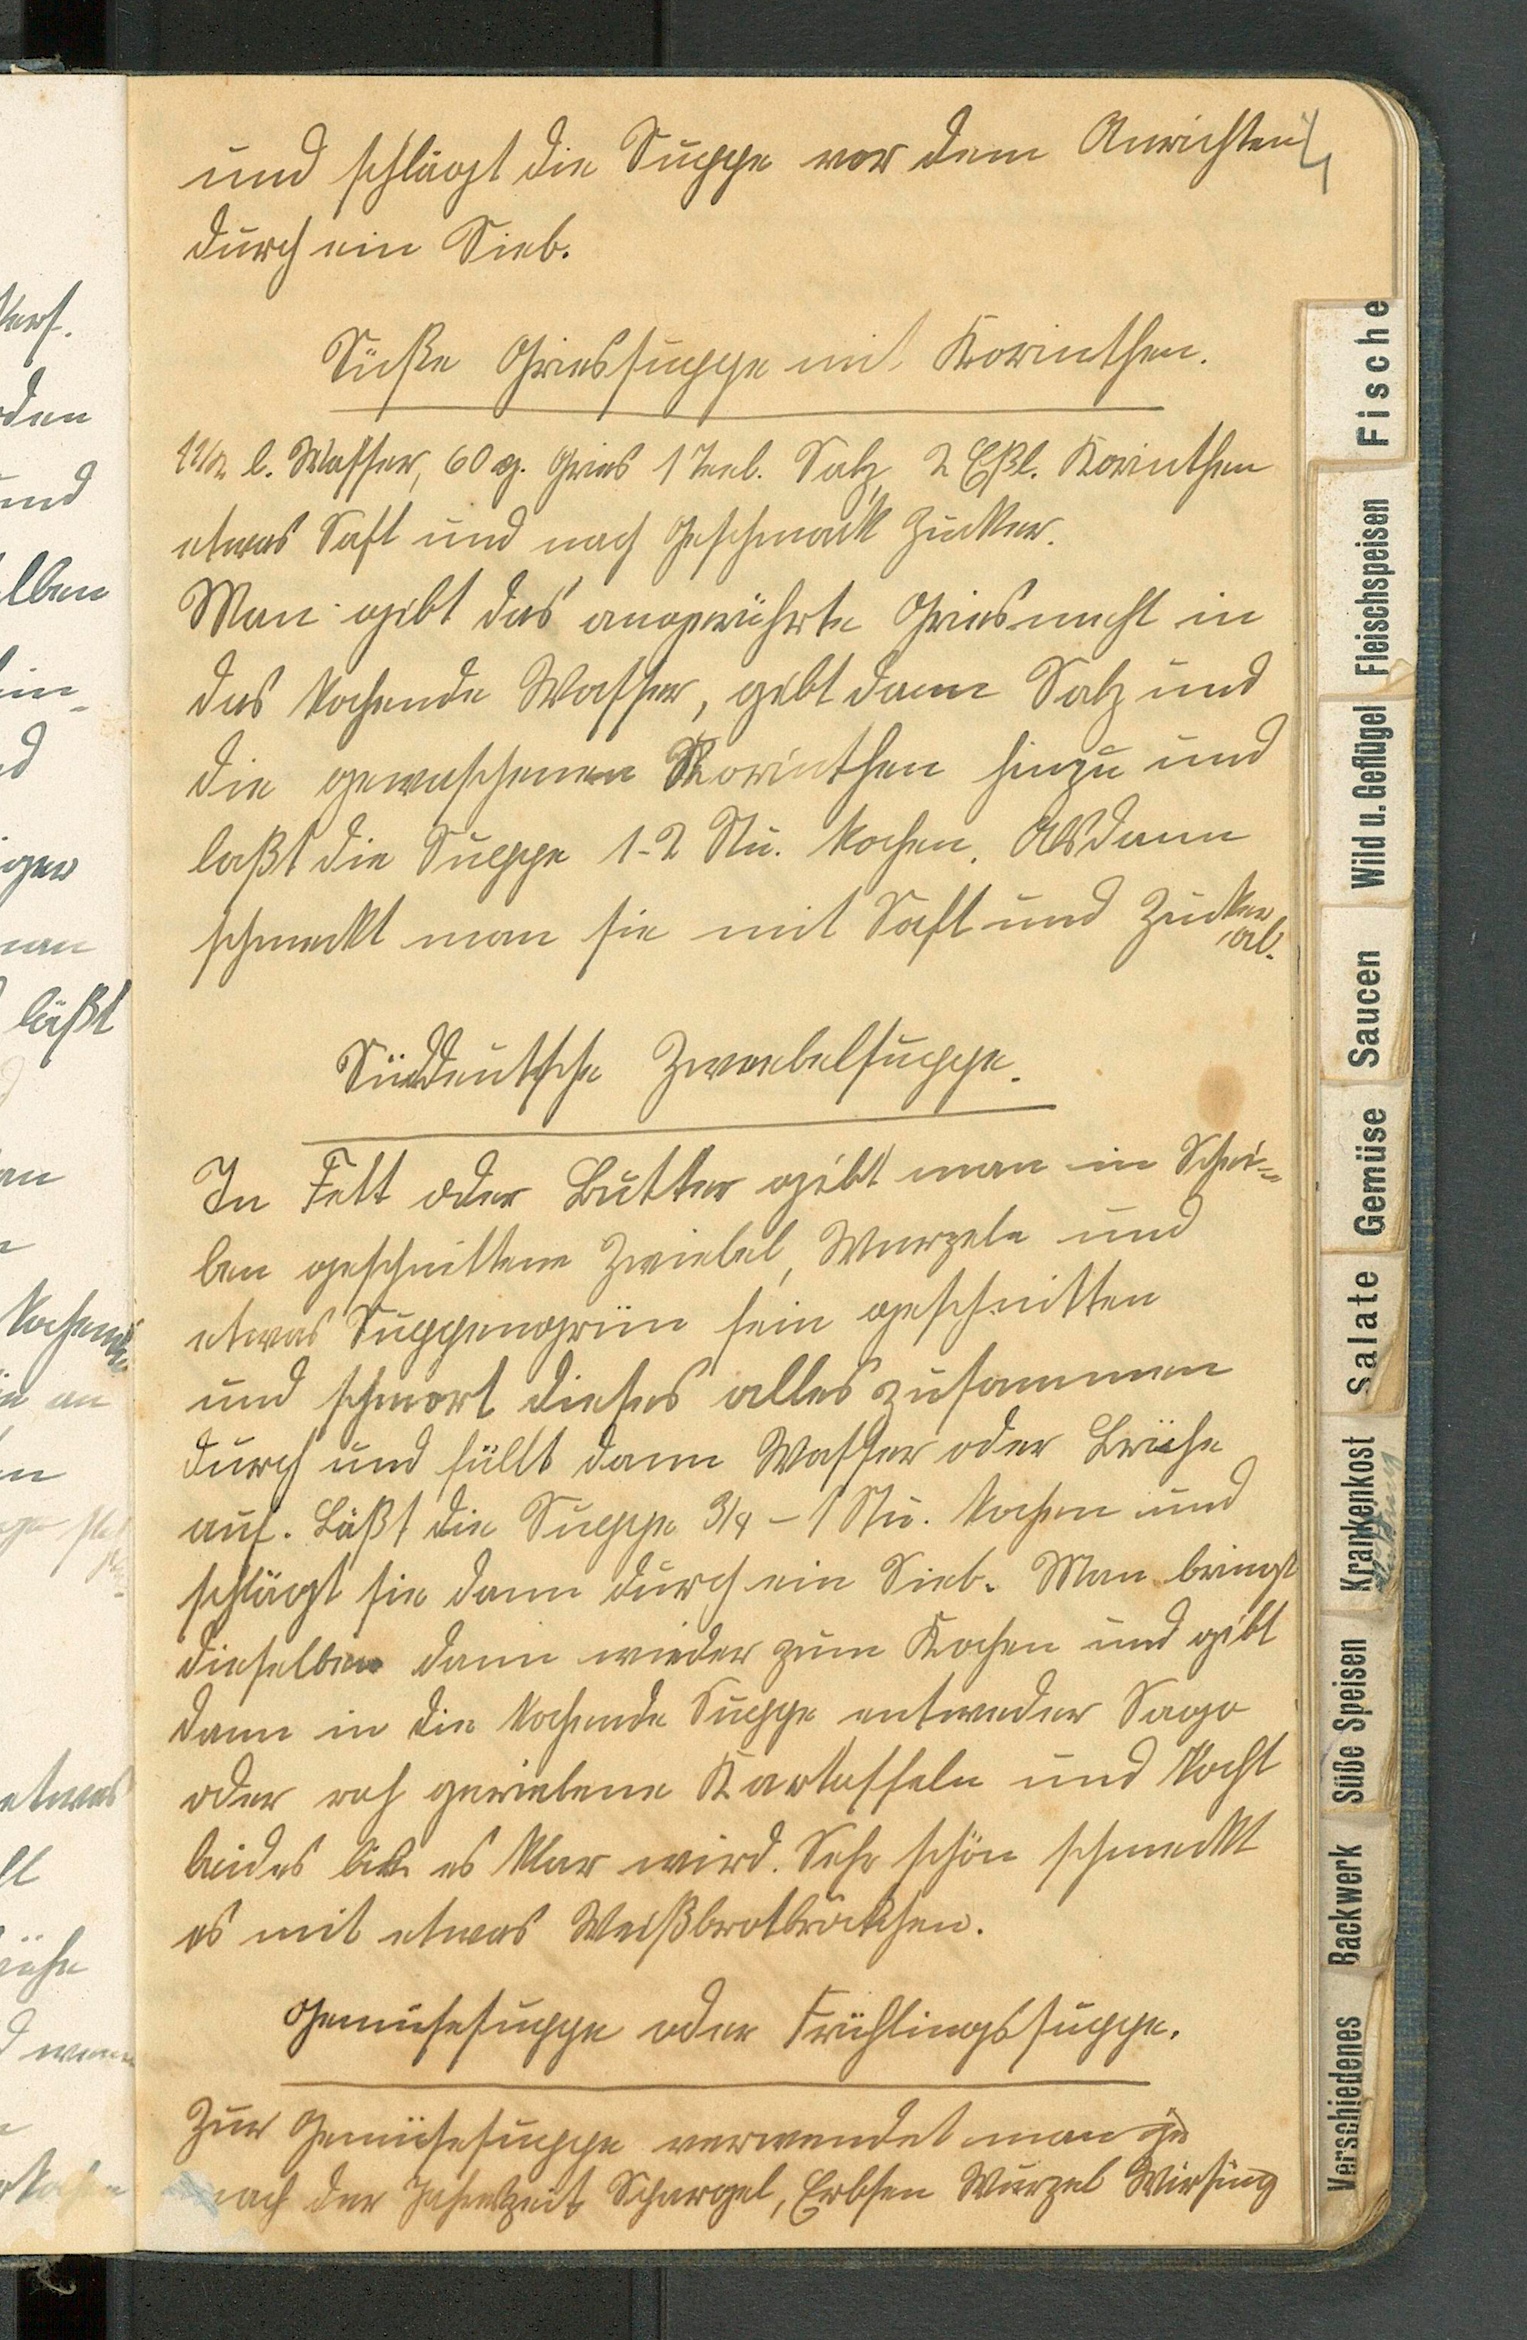 und schlägt die Suppe vor dem Anrichten
4
durch ein Sieb.
Süße Griessuppe mit Korinthen.
1 1/2 l. Wasser, 60 g. Gries 1 Teel. Salz, 2 Eßl. Korinthen
etwas Saft und nach Geschmack Zucker.
Man gibt das angerührte Griesmehl in
das kochende Wasser, gibt dann Salz und
die gewaschenen Korinthen hinzu und
laßt die Suppe 1-2 Stu. kochen. Alsdann
schmeckt man sie mit Saft und Zucker
ab.
Süddeutsche Zwiebelsuppe.
In Fett oder Butter gibt man in Schei-
ben geschnittene Zwiebel, Wurzeln und
etwas Suppengrün fein geschnitten
und schmort dieses alles zusammen
durch und füllt dann Wasser oder Brühe
auf. Läßt die Suppe 3/4 - 1 Stu. kochen und
schlägt sie dann durch ein Sieb. Man bringt
dieselben dann wieder zum Kochen und gibt
dann in die kochende Suppe entweder Sago
oder roh geriebene Kartoffeln und kocht
beides bis es klar wird. Sehr schön schmeckt
es mit etwas Weißbrotbröckchen.
Gemüsesuppe oder Frühlingssuppe.
Zur Gemüsesuppe verwendet man je
nach der Jahreszeit Schargel, Erbsen Wurzel Wirsing
Fische
Fleischspeisen
Wild u. Geflügel
Saucen
Gemüse
Salate
Krankenkost
Süße Speisen
Backwerk
Verschiedenes
den
und
lben
ger
man
läßt
kochen
etwas